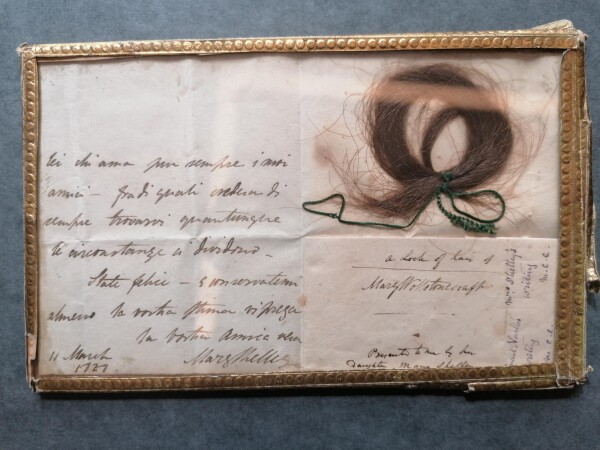 chi ama pur sempre i suoi
amici — fra di quali crederà di
sempre trovarvi quantunque
le circonstanze ci dividono —
State felice — e conservatemi
almeno la vostra stima vi prega
la vostra Amica vera
11 March
Mary Shelley
a Lock of hair of
Mary Wolstonecraft
Presented to me by her
Daughter Mary Shelley
Mrs Shelley's
writing
M.C.C.